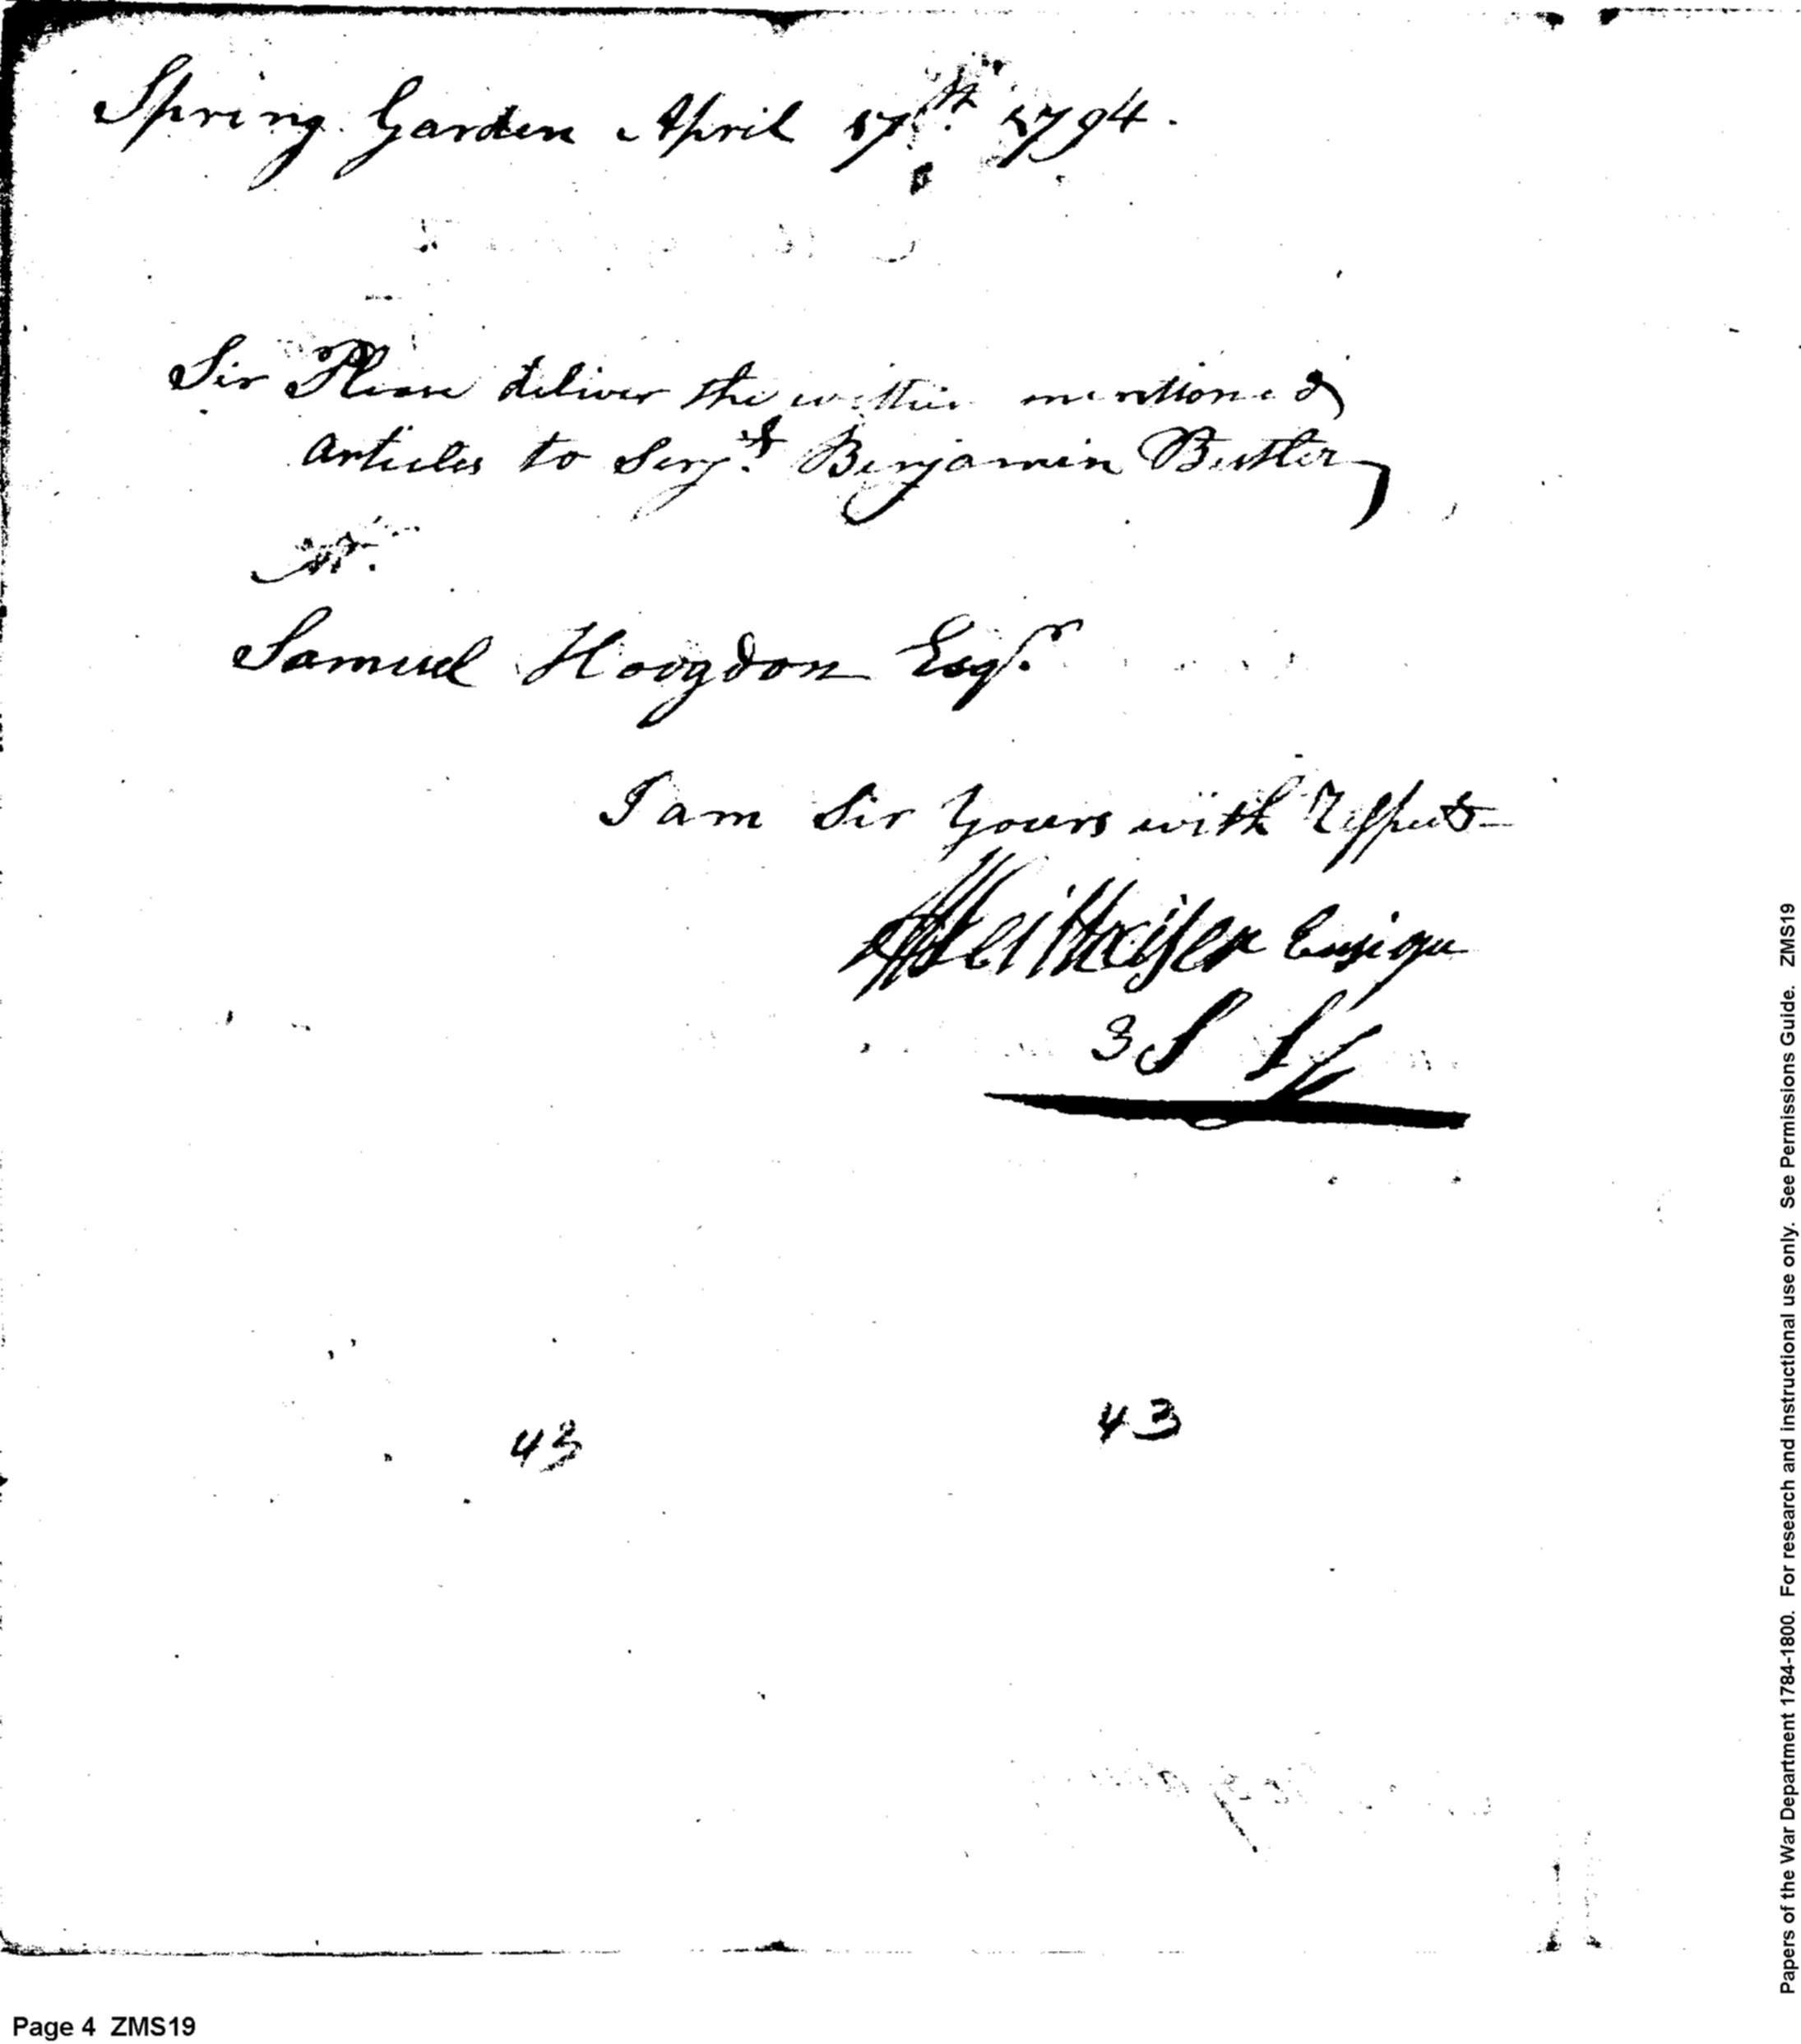 Spring Garden April 17th 1794.
Sir Please deliver the within mentioned
articles to Serjt Benjamin Butler
Samuel Hoogdon Esqr.
I am Sir Yours with Respect
Ensign
3 S L
43 43
Page 4 ZMS19
Papers of the War Department 1784-1800. For research and instructional use only. See Permissions Guide. ZMS19